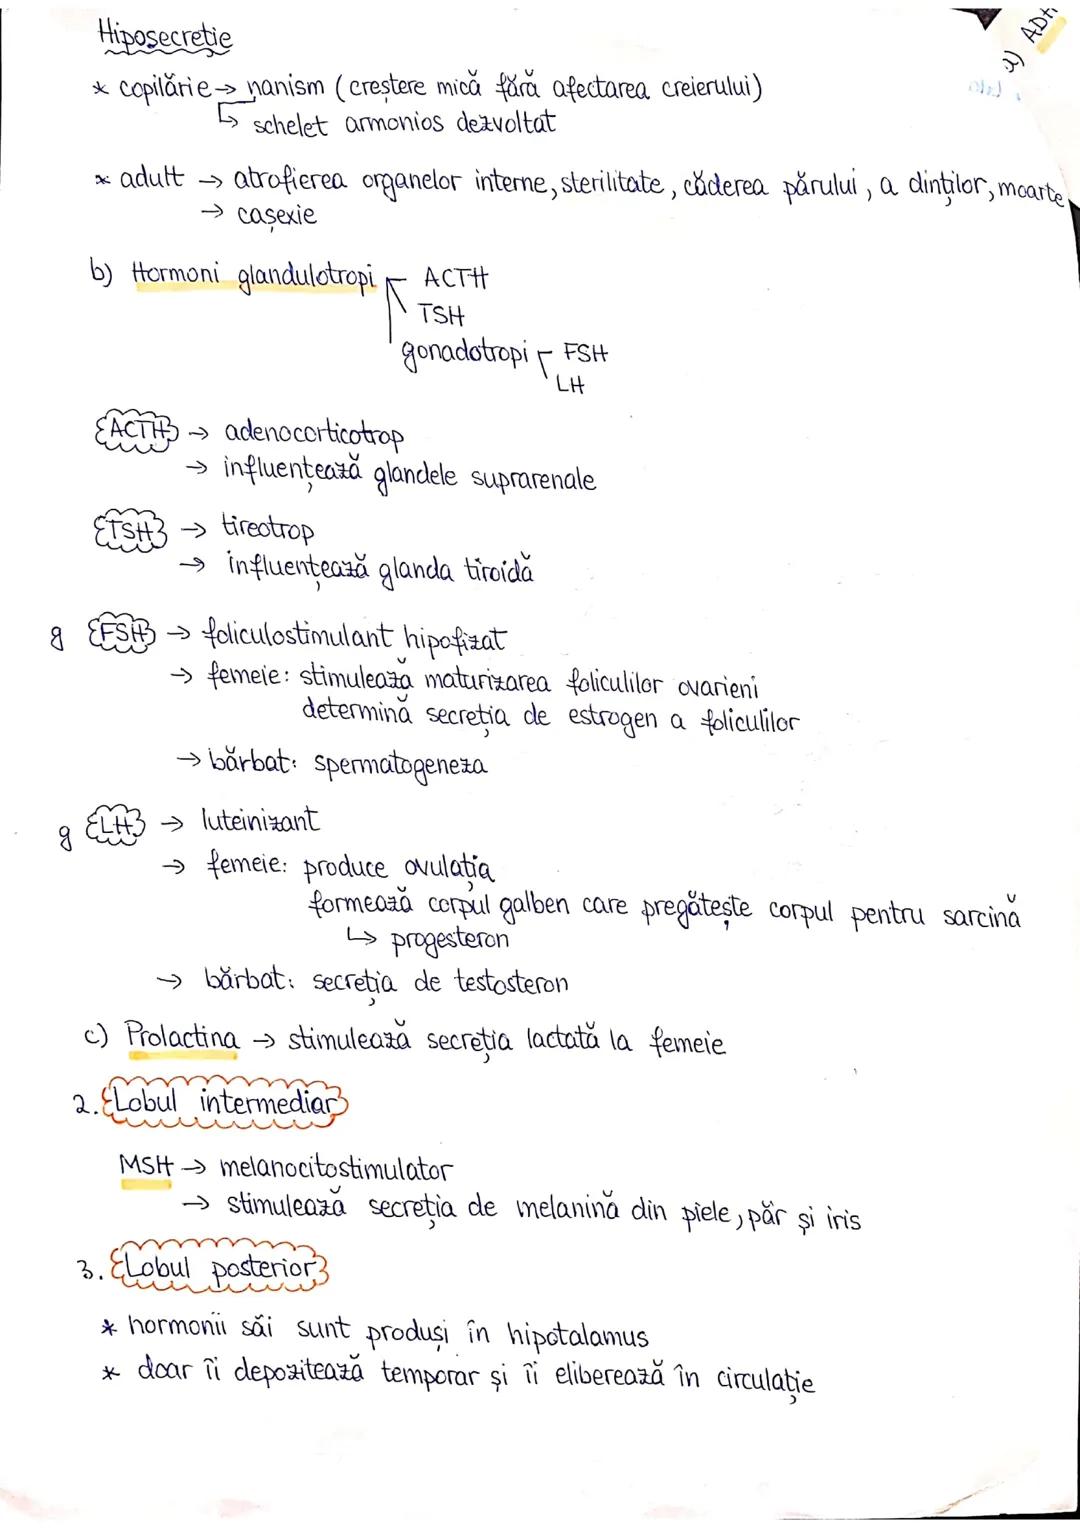 Hiposecretie
* copilărie → nanism (creștere mică fără afectarea creierului)
↳ schelet armonios dezvoltat
* adult → atrofierea organelor interne, sterilitate, căderea părului, a dinților, moarte
→ cașexie
b) Hormoni glandulotropi ACTH
TSH
gonadotropi FSH
LH
ACTH → adenocorticotrop
→ influențează glandele suprarenale
TSH → tireotrop
→ influențează glanda tiroidă
g FSH → foliculostimulant hipofizat
→ femeie: stimulează maturizarea foliculilor ovarieni
determină secreția de estrogen a foliculilor
→ bărbat: spermatogeneza
g LH → luteinizant
→ femeie: produce ovulația
formează corpul galben care pregătește corpul pentru sarcină
↳ progesteron
→ bărbat: secreția de testosteron
c) Prolactina → stimulează secreția lactată la femeie
2. Lobul intermediar
MSH → melanocitostimulator
→ stimulează secreția de melanină din piele, păr și iris
3. Lobul posterior
* hormonii săi sunt produși în hipotalamus
* doar îi depozitează temporar și îi eliberează în circulație